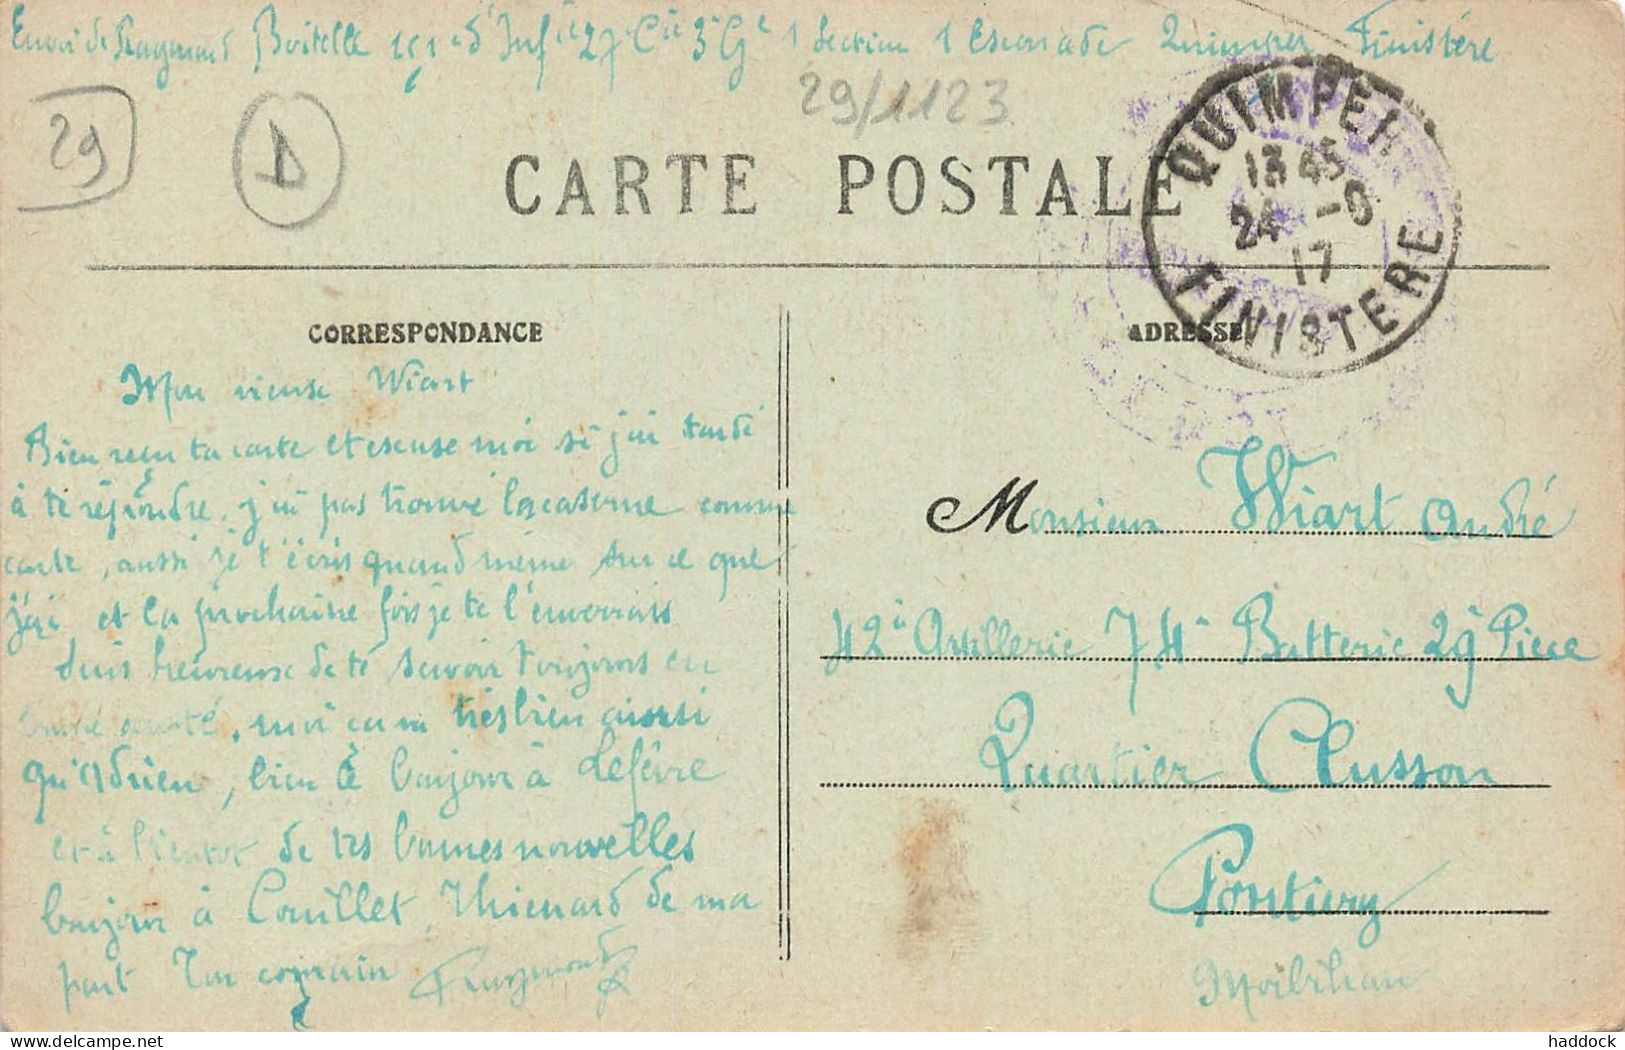 Envoi de Raymond Boitelle 151e d'Infie 27 Cie 3 Ge 1 Section 1 Escouade Quimper Finistère
29/1123
29
D
CARTE POSTALE
QUIMPER
13 45
24 -9
17
FINISTERE
CORRESPONDANCE
ADRESSE
Mon vieux Wiart
Bien reçu ta carte et escuse moi si j'ai tardé
à te répondre, j'ai pas trouvé la caserne comme
carte, aussi je t'écris quand même sur ce que
j'ai et la prochaine fois je te l'enverrais
suis heureuse de te savoir toujours en
bonne santé, moi ca va très bien aussi
qu'Adrien, bien le bonjour à Lefèvre
et à bientot de tes bonnes nouvelles
bonjour à Couillet, Thienard de ma
part Ton copain Raymond
Monsieur Wiart André
42e Artillerie 74e Batterie 29 Pièce
Quartier Clusson
Pontivy
Morbihan
delcampe.net
haddock